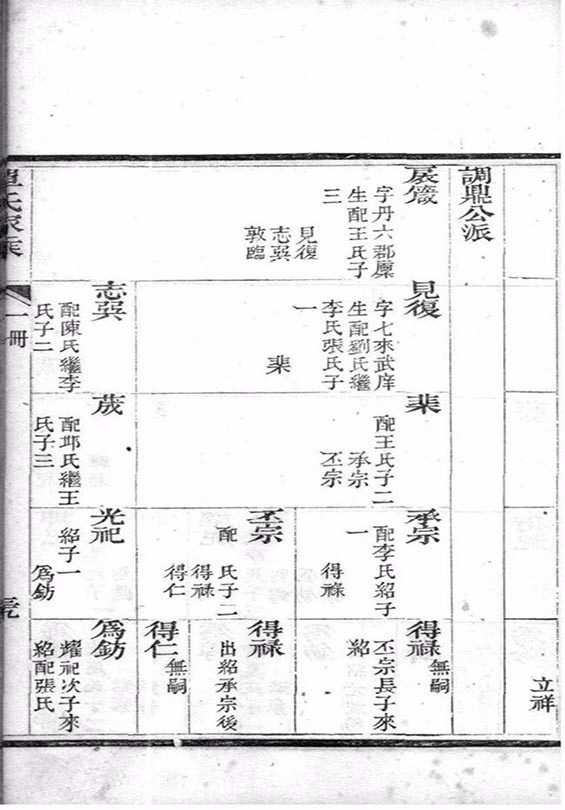 立祥
調鼎公派
扆箴
字丹六郡廩
生配王氏子
三
見復
志巽
敦臨
見復
字七來武庠
生配劉氏繼
李氏張氏子
一
棐
志巽
配陳氏繼李
氏子二
棐
配王氏子二
承宗
丕宗
荿
配邴氏繼王
氏子三
承宗
配李氏紹子
一
得祿
丕宗
配 氏子二
得祿
得仁
光祀
紹子一
為鈁
得祿
無嗣
丕宗長子來
紹
得祿
出紹承宗後
得仁
無嗣
為鈁
燿祀次子來
紹配張氏
氏家乘
一冊